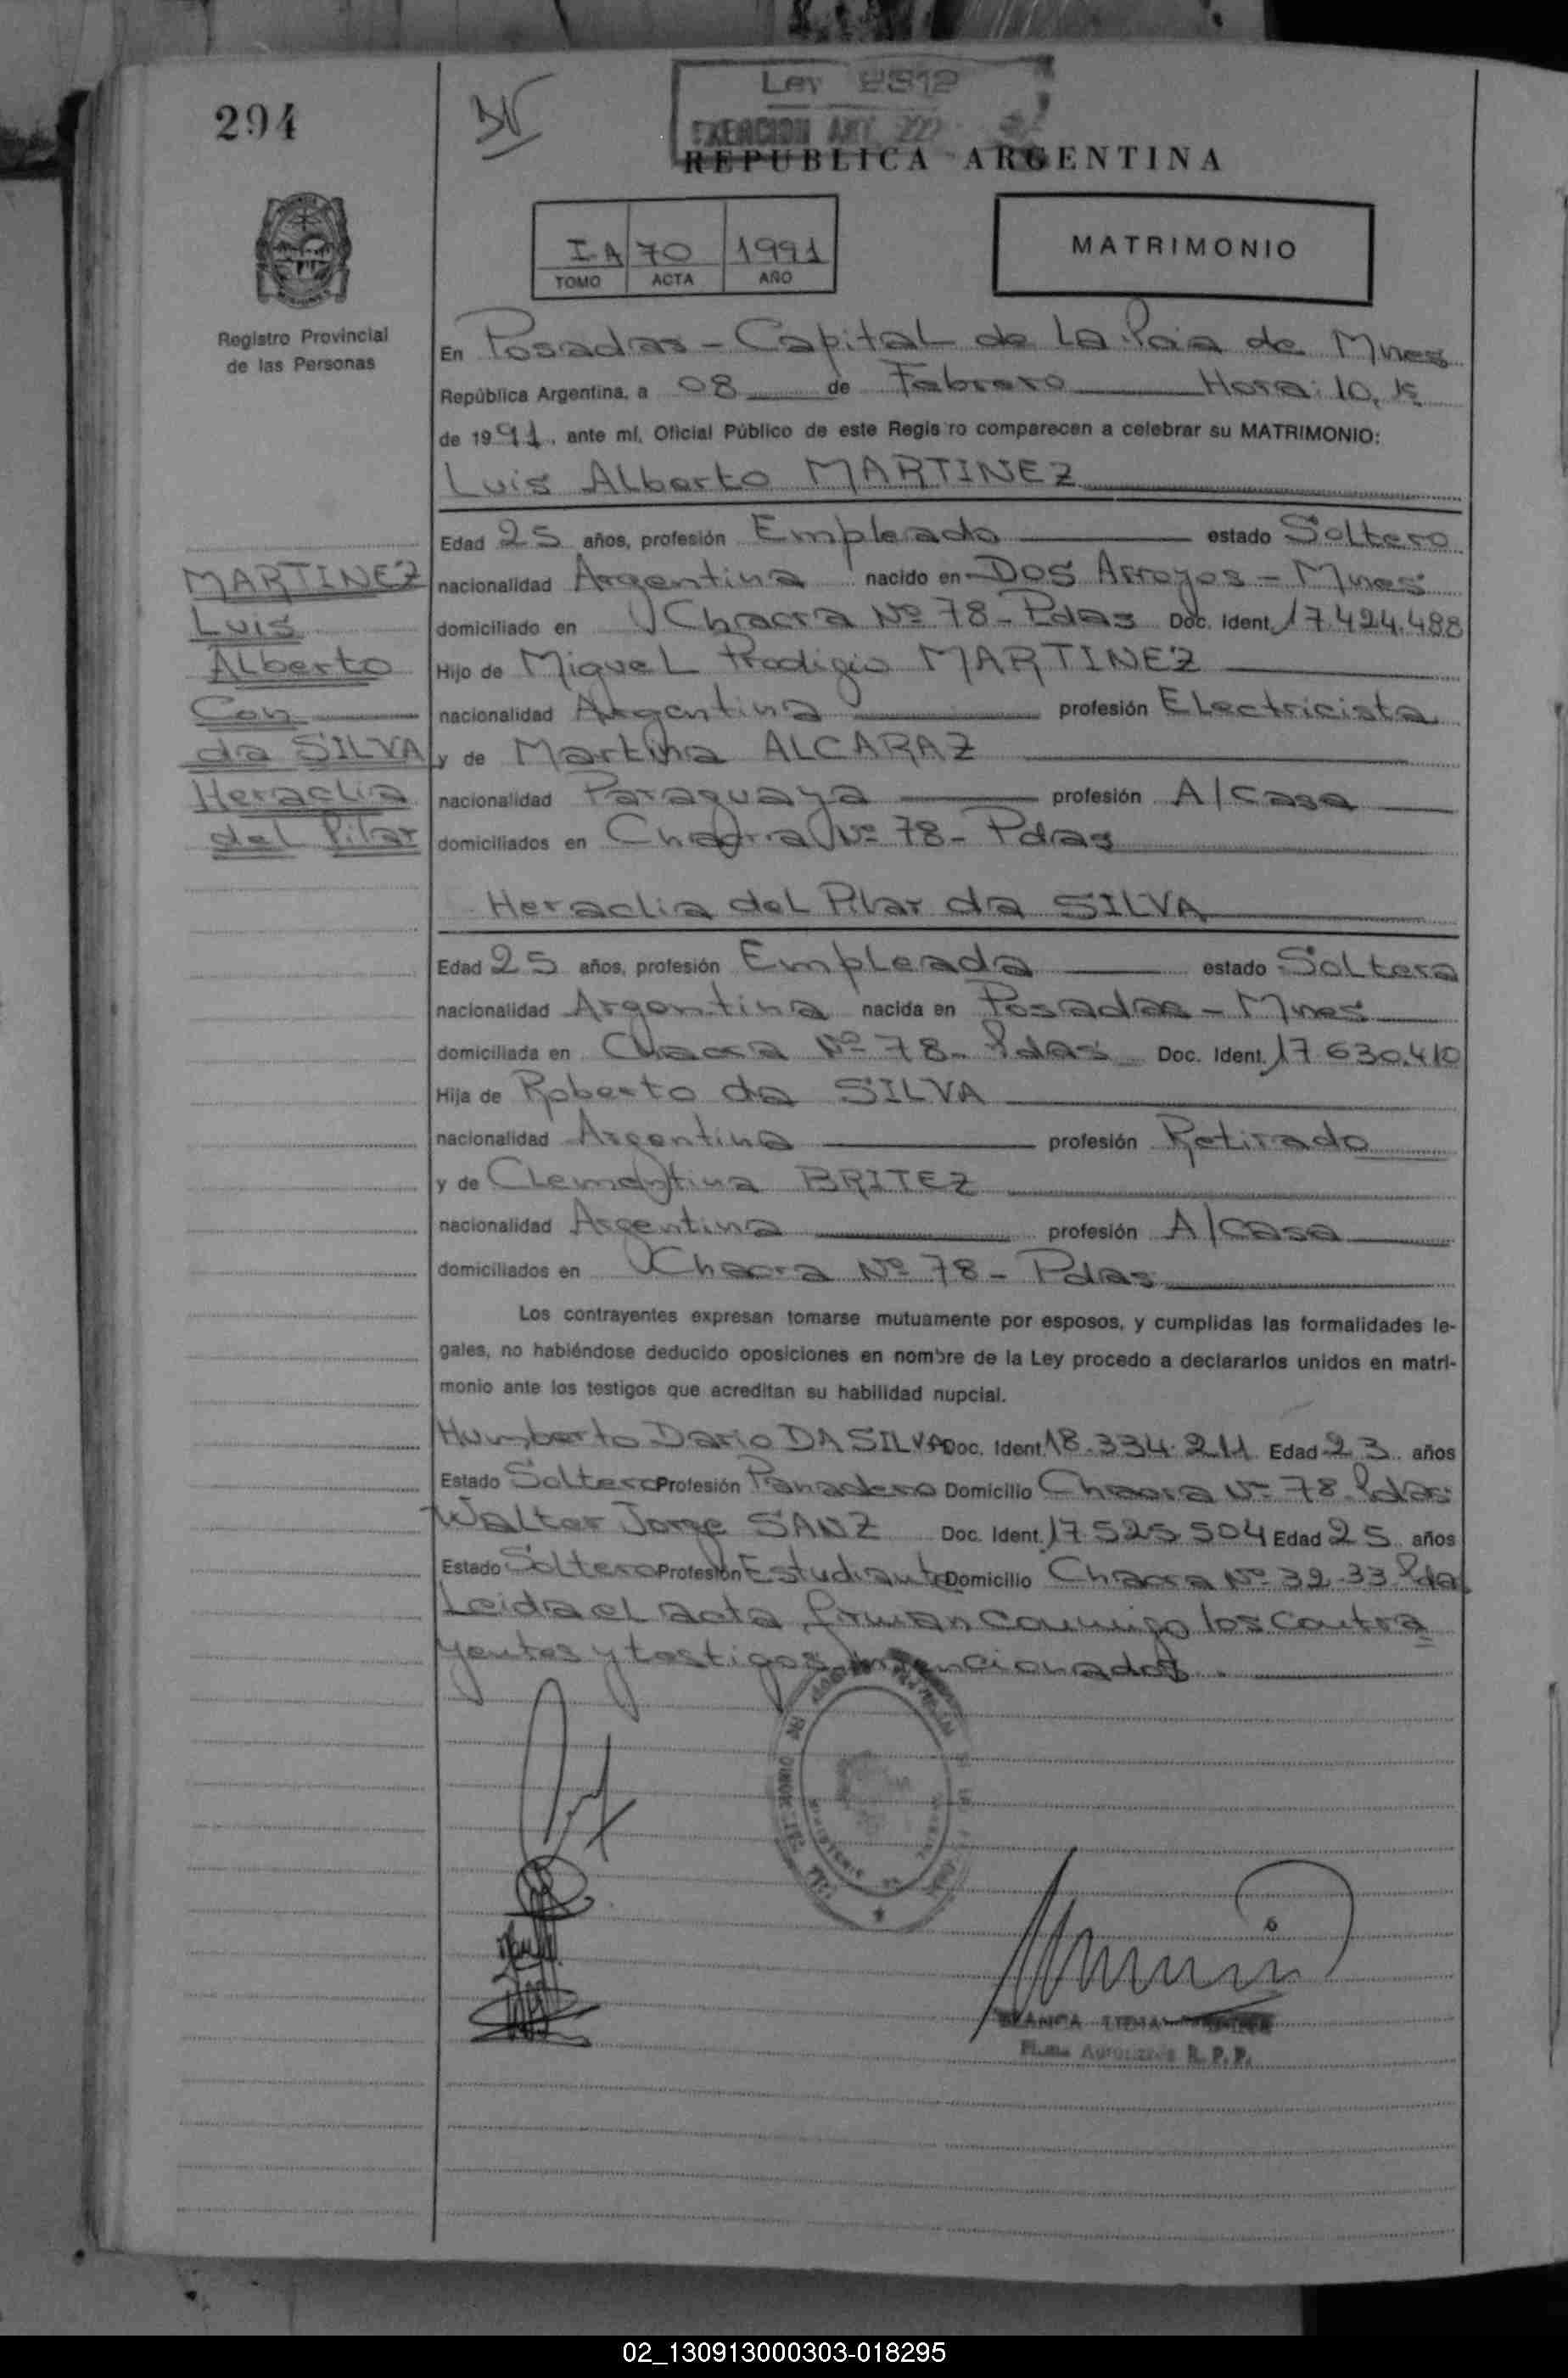 294
Ley 2312
EXENCION ART. 222
REPUBLICA ARGENTINA
I-A 70 1991
TOMO ACTA AÑO
MATRIMONIO
Registro Provincial
de las Personas
En Posadas - Capital de La Pcia de Mnes
República Argentina, a 08 de Febrero Hora: 10,15
de 1991, ante mí, Oficial Público de este Regis ro comparecen a celebrar su MATRIMONIO:
Luis Alberto MARTINEZ
Edad 25 años, profesión Empleado estado Soltero
nacionalidad Argentina nacido en Dos Arroyos - Mnes
domiciliado en Chacra Nº 78 - Pdas Doc. Ident. 17.424.488
Hijo de Miguel Prodigio MARTINEZ
nacionalidad Argentina profesión Electricista
y de Martina ALCARAZ
nacionalidad Paraguaya profesión A/casa
domiciliados en Chacra Nº 78 - Pdas
MARTINEZ
Luis
Alberto
Con
da SILVA
Heraclia
del Pilar
Heraclia del Pilar da SILVA
Edad 25 años, profesión Empleada estado Soltera
nacionalidad Argentina nacida en Posadas - Mnes
domiciliada en Chacra Nº 78 - Pdas Doc. Ident. 17.630.410
Hija de Roberto da SILVA
nacionalidad Argentina profesión Retirado
y de Clementina BRITEZ
nacionalidad Argentina profesión A/casa
domiciliados en Chacra Nº 78 - Pdas
Los contrayentes expresan tomarse mutuamente por esposos, y cumplidas las formalidades le-
gales, no habiéndose deducido oposiciones en nombre de la Ley procedo a declararlos unidos en matri-
monio ante los testigos que acreditan su habilidad nupcial.
Humberto Dario DA SILVA Doc. Ident. 18.334.211 Edad 23 años
Estado Soltero Profesión Panadero Domicilio Chacra Nº 78 Pdas
Walter Jorge SANZ Doc. Ident. 17.525.504 Edad 25 años
Estado Soltero Profesión Estudiante Domicilio Chacra Nº 32-33 Pda
Leida el acta, firman conmigo los contra
yentes y testigos mencionados.
BLANCA
Firma Autorizada R. P. P.
02_130913000303-018295